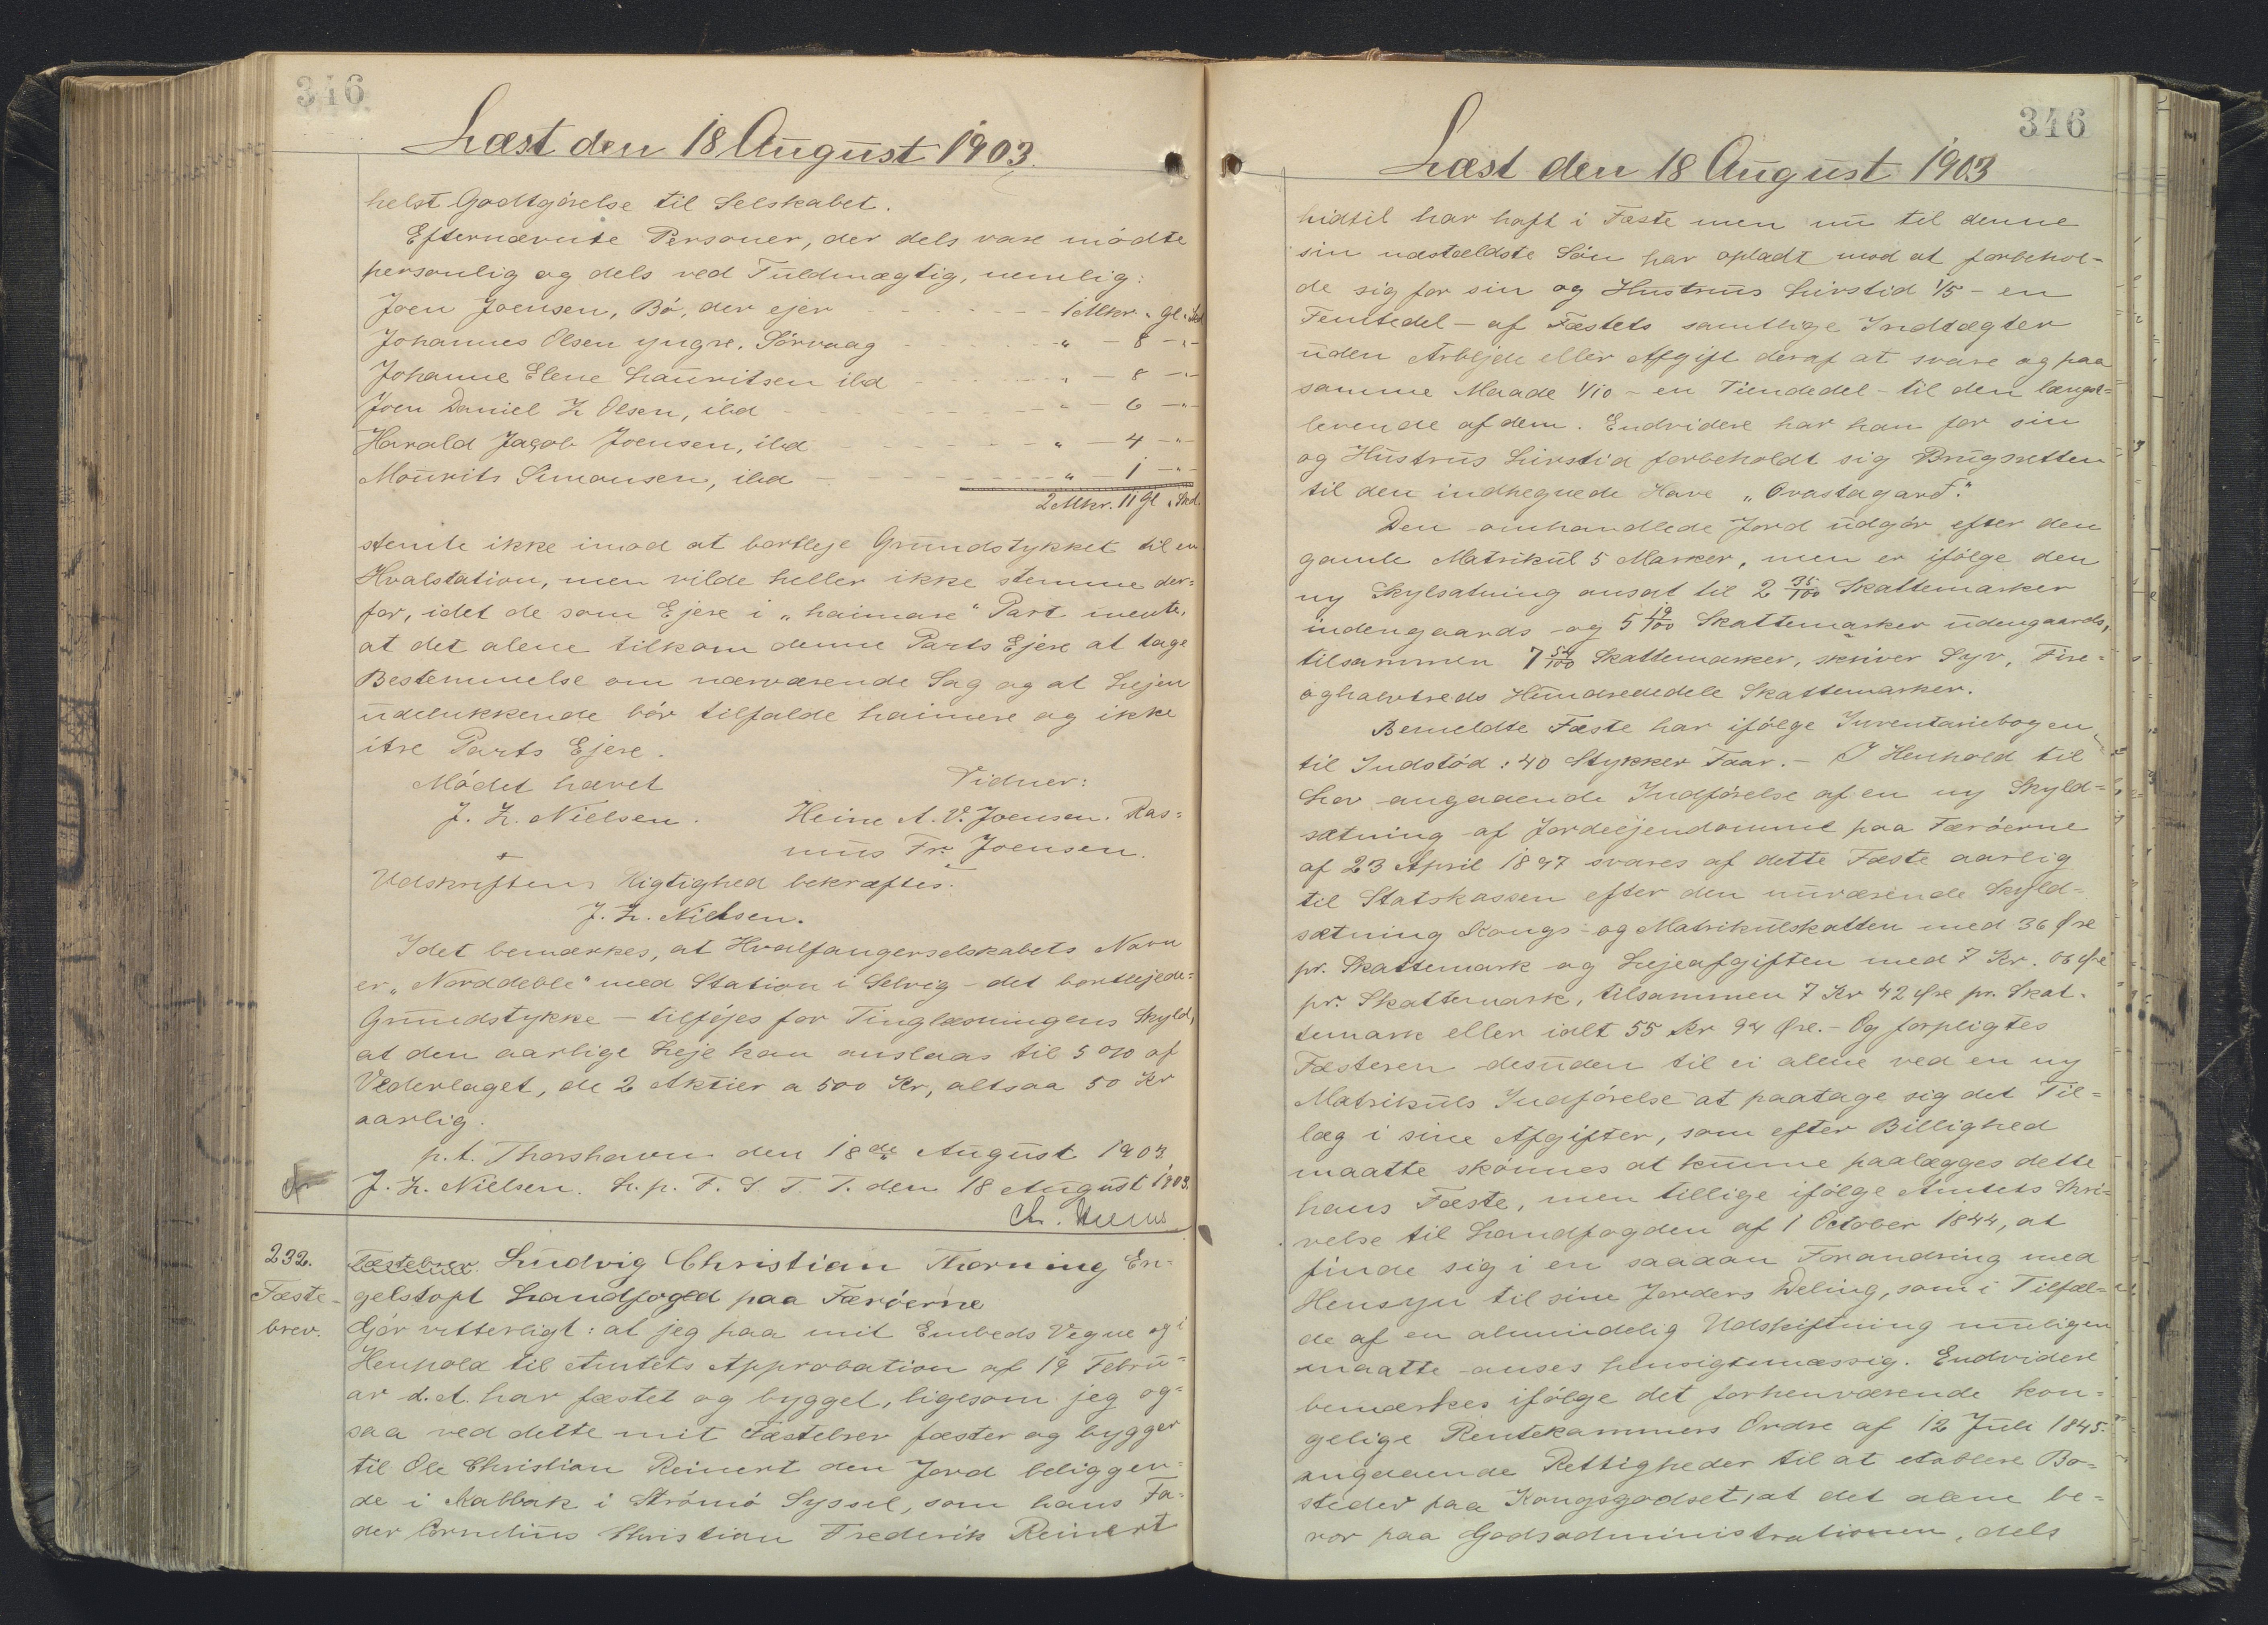 346
Læst den 18 August 1903.
helst Godtgörelse til Selskabet.
Efternævnte Personer, der dels vare mödte
personlig og dels ved Fuldmægtig, nemlig:
Joen Joensen, Bö, der ejer - - - 1 Mkr. " Gl. " Skd
Johannes Olsen yngre. Sörvaag - - - " - 8 - " -
Johanne Elene Lauritsen ibd - - - " - 8 - " -
Joen Daniel Z Olsen, ibd - - - " - 6 - " -
Harald Jacob Joensen, ibd - - - " - 4 - " -
Mourits Simonsen, ibd - - - " - 1 - " -
2 Mkr. 11 Gl " Skd.
stemte ikke imod at bortleje Grundstykket til en
Hvalstation, men vilde heller ikke stemme der=
for, idet de som Ejere i „haimare" Part mente,
at det alene tilkom denne Parts Ejere at tage
Bestemmelse om nærværende Sag og at Lejen
udelukkende bör tilfalde haimere og ikke
itre Parts Ejere.
Mödet hævet
Vidner:
J. Z. Nielsen.
Heine A. V. Joensen. Ras=
mus Fr. Joensen.
Udskriftens Rigtighed bekræftes.
J. Z. Nielsen.
Idet bemærkes, at Hvalfangerselskabets Navn
er „Norddeble" med Station i Selvig - det bortlejede=
Grundstykke - tilföjes for Tinglæsningens Skyld,
at den aarlige Leje kan anslaas til 5 0/0 af
Vederlaget, de 2 Aktier a 500 Kr, altsaa 50 Kr
aarlig.
p.t. Thorshavn den 18de August 1903
J. Z. Nielsen. L. p. F. S. T. T. den 18 August 1903.
232.
Fæste-
brev.
Fæstebrev. Ludvig Christian Thorning En=
gelstoft Landfoged paa Færöerne
Gjör vitterligt: at jeg paa mit Embeds Vegne og i
Henhold til Amtets Approbation af 19 Febru=
ar d.A. har fæstet og bygget, ligesom jeg og=
saa ved dette mit Fæstebrev fæster og bygger
til Ole Christian Reinert den Jord beliggen=
de i Kalbak i Strömö Syssel, som hans Fa=
der Cornelius Christian Frederik Reinert
346
Læst den 18 August 1903
hidtil har haft i Fæste men nu til denne
sin næstældste Sön har opladt mod at forbehol=
de sig for sin og Hustrus Livstid 1/5 - en
Femtedel - af Fæstets samtlige Indtægter
uden Arbejde eller Afgift deraf at svare og paa
samme Maade 1/10 - en Tiendedel - til den længst=
levende af dem. Endvidere har han for sin
og Hustrus Livstid forbeholdt sig Brugsretten
til den indhegnede Have „Ovastagard".
Den omhandlede Jord udgör efter den
gamle Matrikul 5 Marker, men er ifölge den
ny Skylsætning ansat til 2 35/100 Skattemarker
indengaards og 5 19/100 Skattemarker udengaards,
tilsammen 7 54/100 Skattemarker, skriver Syv, Fire=
oghalvtreds Hundrededele Skattemarker.
Bemeldte Fæste har ifölge Inventariebogen
til Indstöd: 40 Stykker Faar. - I Henhold til
Lov angaaende Indförelse af en ny Skyld=
sætning af Jordeejendomme paa Færöerne
af 23 April 1897 svares af dette Fæste aarlig
til Statskassen efter den nuværende Skyld=
sætning Kongs- og Matrikulskatten med 36 Øre
pr. Skattemark og Lejeafgiften med 7 Kr. 06 Øre
pr. Skattemark, tilsammen 7 Kr 42 Øre pr. Skat=
temark eller ialt 55 Kr 94 Øre. - Og forpligtes
Fæsteren desuden til ei alene ved en ny
Matrikuls Indförelse at paatage sig det Til=
læg i sine Afgifter, som efter Billighed
maatte skönnes at kunne paalægges dette
hans Fæste, men tillige ifölge Amtets Skri=
velse til Landfogden af 1 October 1844, at
finde sig i en saadan Forandring med
Hensyn til sine Jorders Deling, som i Tilfæl=
de af en almindelig Udskiftning muligen
maatte anses hensigtsmæssig. Endvidere
bemærkes ifölge det forhenværende kon=
gelige Rentekammers Ordre af 12 Juli 1845.
angaaende Rettigheder til at etablere Bo=
steder paa Kongsgodset, at det alene be=
ror paa Godsadministrationen, dels